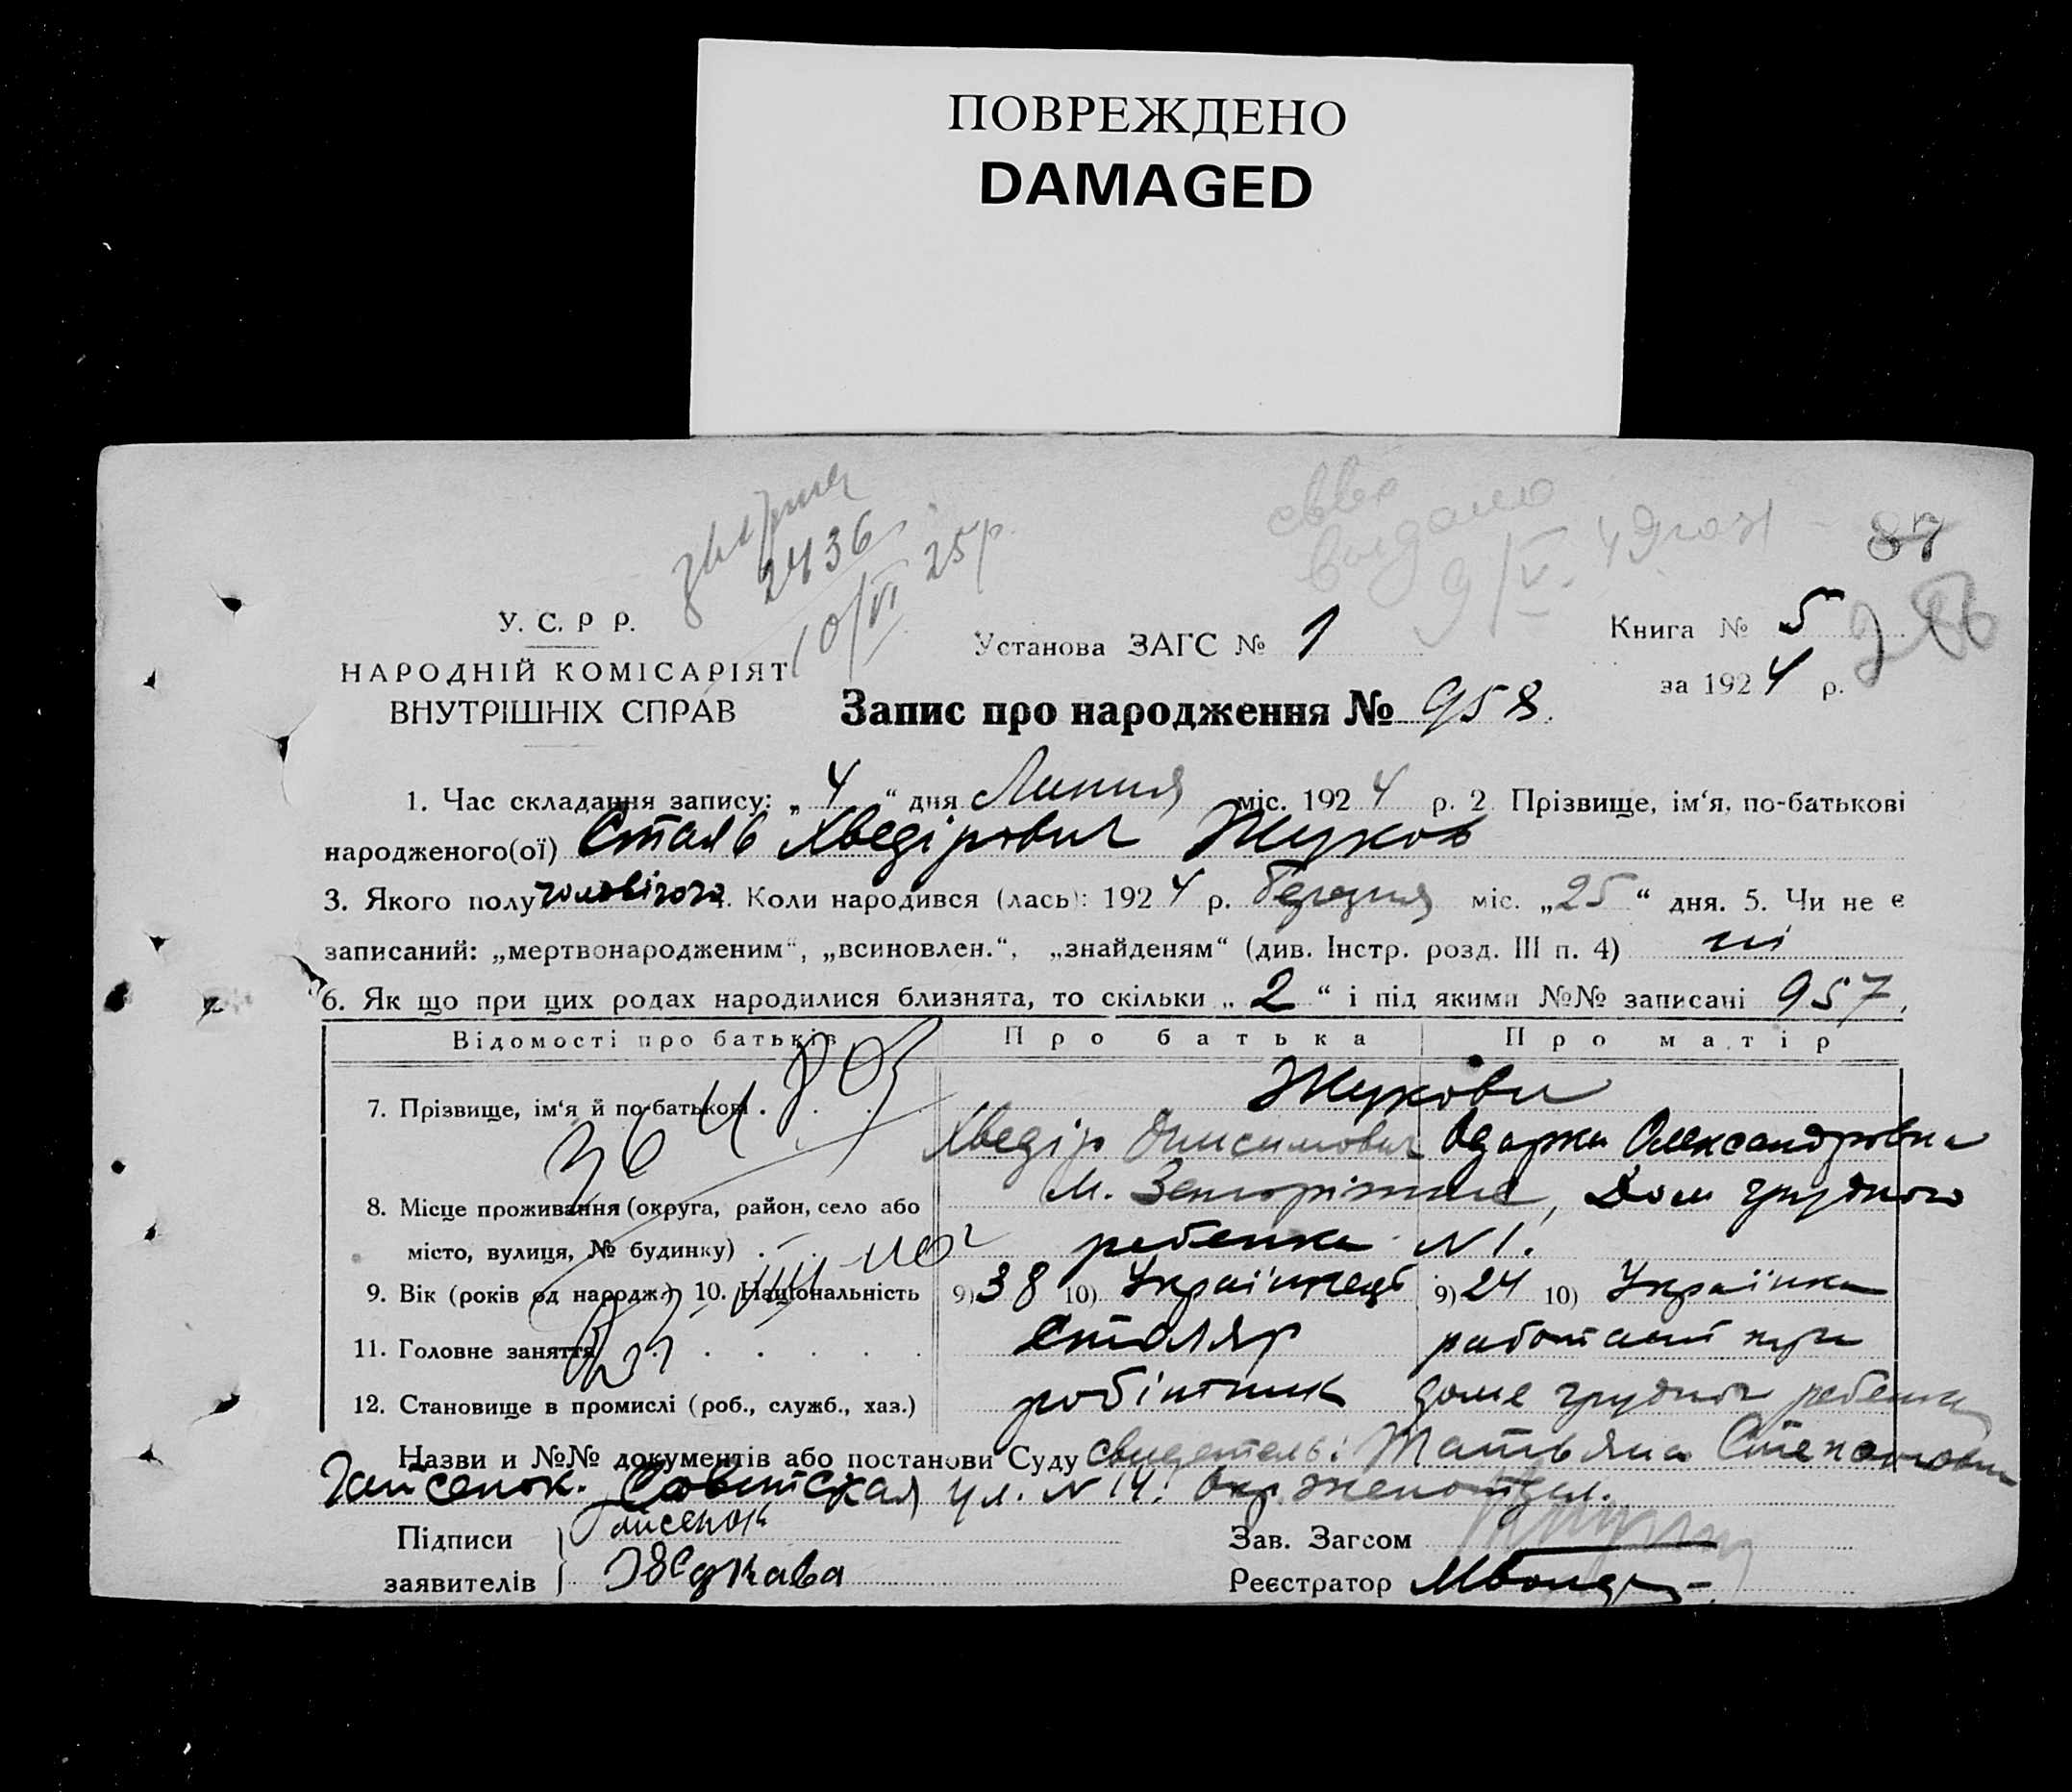 ПОВРЕЖДЕНО
DAMAGED
2436
10/VI 25р.
видано
9/V. 49
87
У. С. Р Р.
НАРОДНІЙ КОМІСАРІЯТ
ВНУТРІШНІХ СПРАВ
Установа ЗАГС № 1
Книга № 5
за 1924 р.
Запис про народження № 958.
1. Час складання запису: „4“ дня Липня міс. 1924 р. 2 Прізвище, ім‘я, по-батькові
народженого(ої) Сталь Хведірович Жуков
3. Якого полу чоловічого 4. Коли народився (лась): 1924 р. березня міс. „25“ дня. 5. Чи не є
записаний: „мертвонародженим“, „всиновлен.“, „знайденям“ (див. Інстр. розд. III п. 4) ні
6. Як що при цих родах народилися близнята, то скільки „2“ і під якими №№ записані 957,
Відомості про батьків Про батька Про матір
7. Прізвище, ім‘я й по-батькові . Жукови
Хведір Онисимович Одарка Олександровна
8. Місце проживання (округа, район, село або м. Запоріжжє, Дом грудного
місто, вулиця, № будинку) . ребенка N 1.
9. Вік (років од народж.) 10. Національність 9) 38 10) Українець 9) 24 10) Українка
11. Головне заняття Столяр работает при
12. Становище в промислі (роб., служб., хаз.) робітник доме грудного ребенка
Назви и №№ документів або постанови Суду свидетель: Татьяна Степановна
Гайсенок. Советская ул. N 14. Окр. женотдел.
Підписи заявителів Гайсенок
Зав. Загсом
Реєстратор